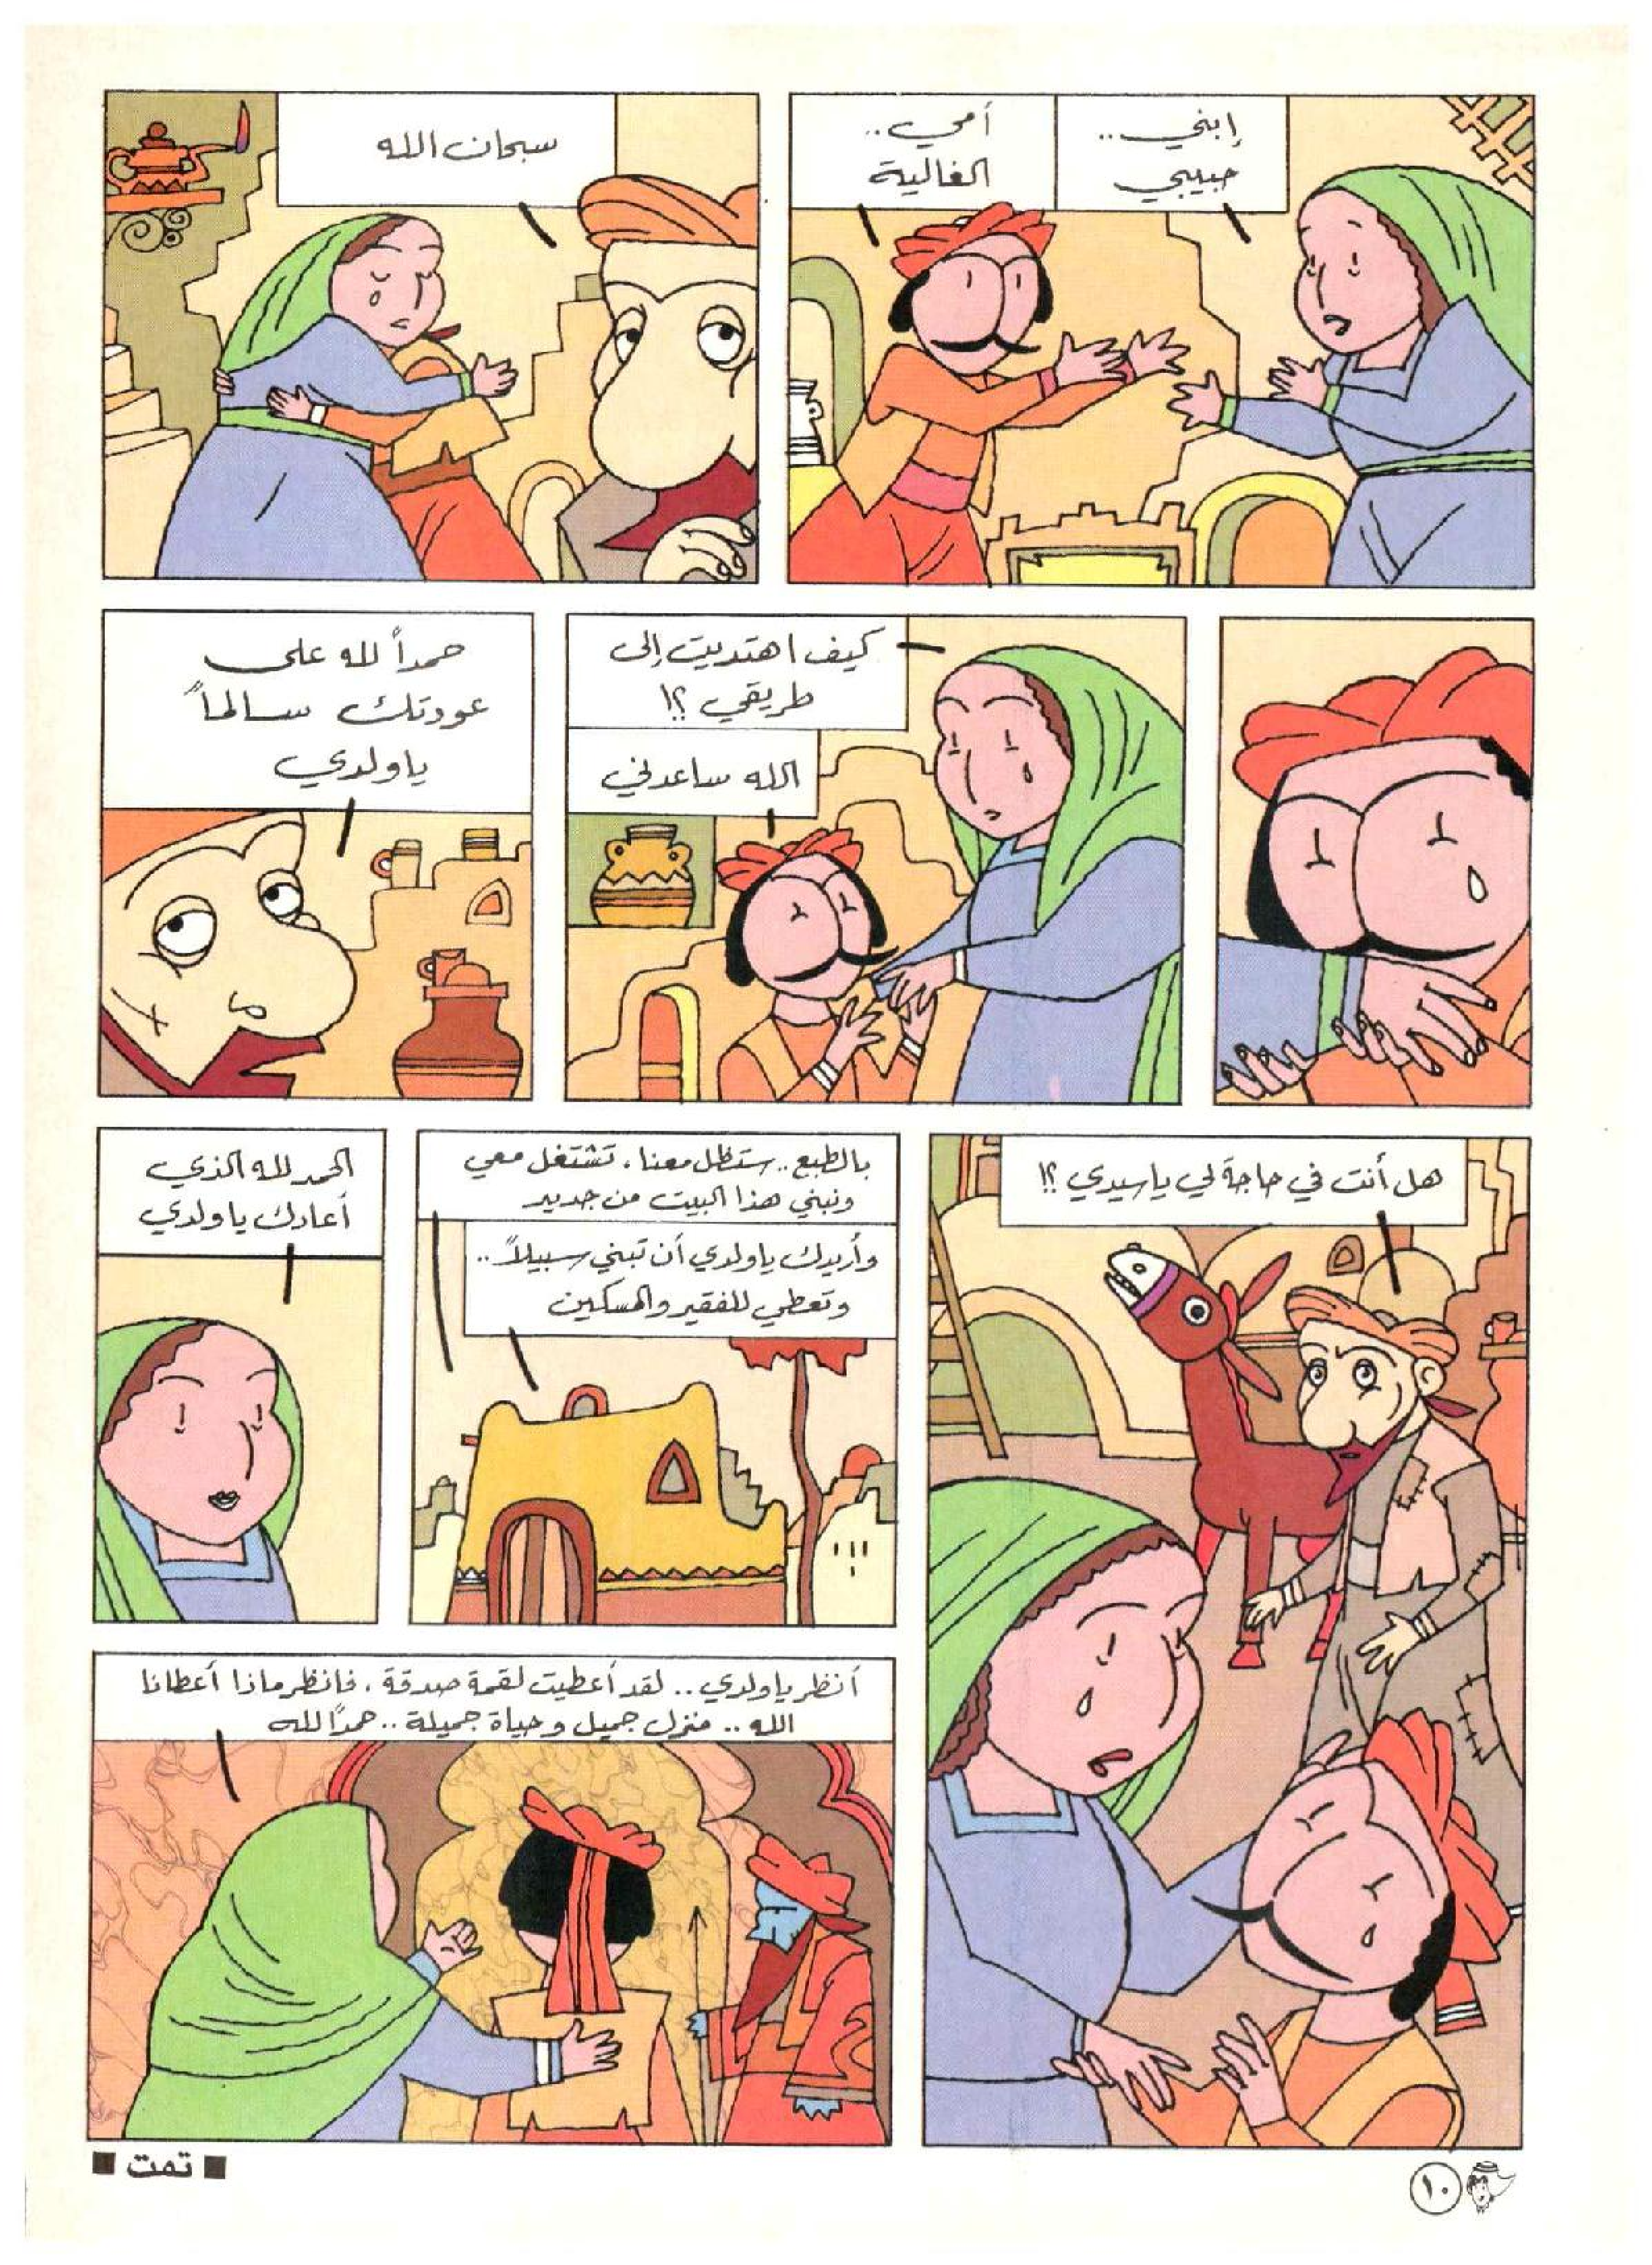 إبني..
حبيبي
أمي..
الغالية
سبحان الله
كيف اهتديت إلى
طريقي ؟!
الله ساعدني
حمداً لله على
عودتك سالماً
ياولدي
هل أنت في حاجة لي ياسيدي ؟!
بالطبع.. ستظل معنا، تشتغل معي
ونبني هذا البيت من جديد
وأريدك ياولدي أن تبني سبيلاً..
وتعطي للفقير والمسكين
الحمد لله الذي
أعادك ياولدي
أنظر ياولدي.. لقد أعطيت لقمة صدقة، فانظر ماذا أعطانا
الله.. منزل جميل وحياة جميلة.. حمداً لله
تمت
١٠